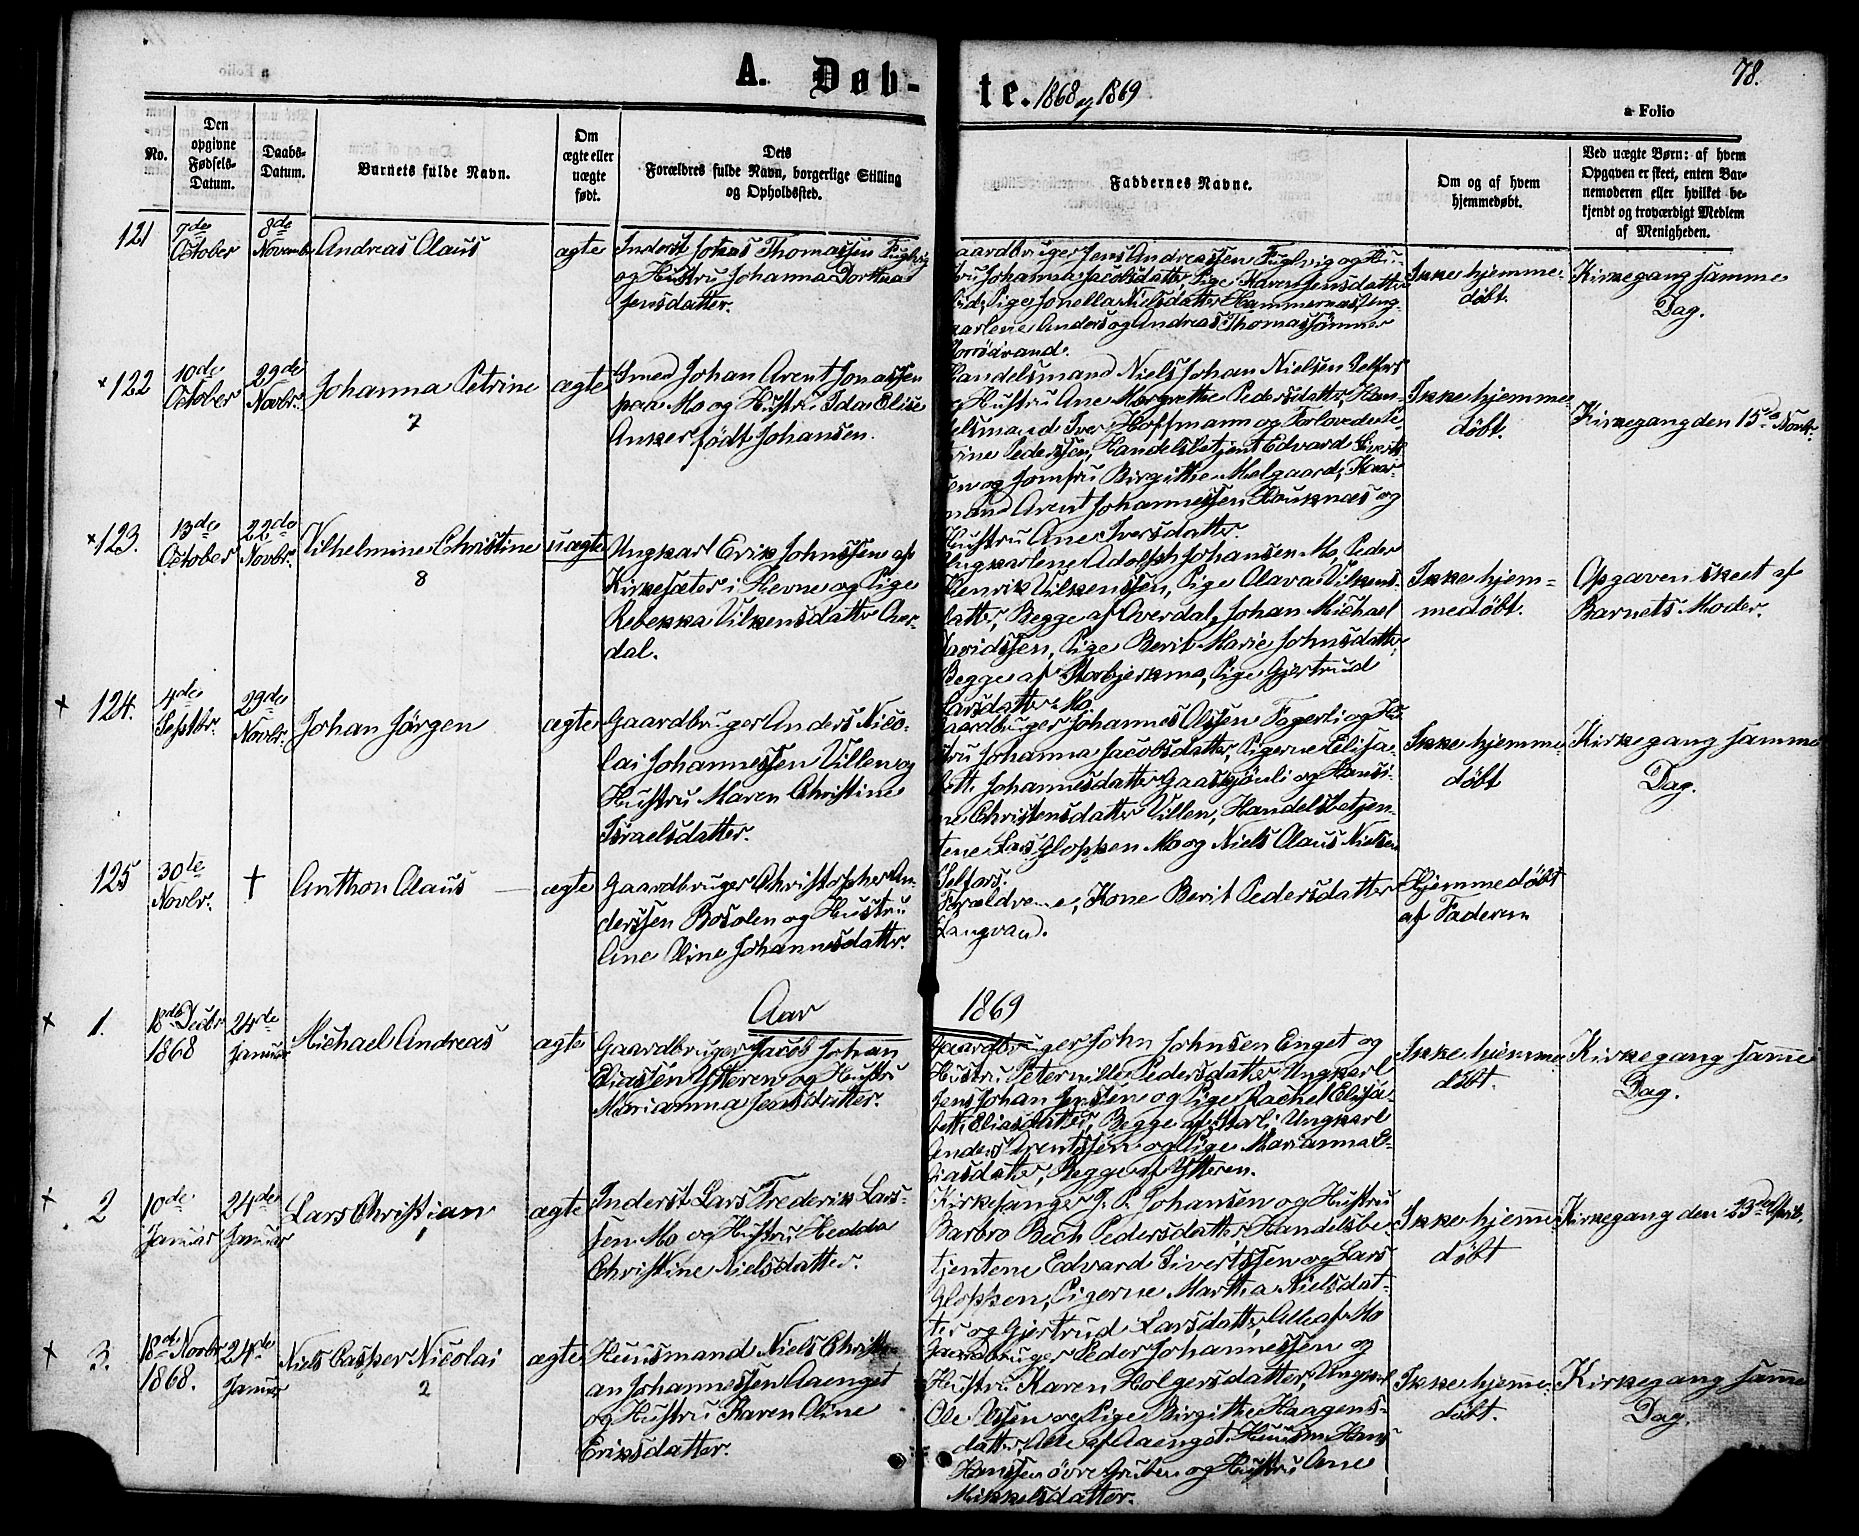 A. Døb-
te. 1868 og 1869
78.
a Folio
No.
Den
opgivne
Fødsels-
Datum.
Daabs-
Datum.
Barnets fulde Navn.
Om
ægte eller
uægte
født.
Dets
Forældres fulde Navn, borgerlige Stilling
og Opholdssted.
Faddernes Navne.
Om og af hvem
hjemmedøbt.
Ved uægte Børn: af hvem
Opgaven er skeet, enten Bar-
nemoderen eller hvilket be-
kjendt og troværdigt Medlem
af Menigheden.
121
7de
October
8de
Novembr
Andreas Olaus
ægte
Inderst Jonas Thomassen Fuglvig
og Hustru Johanna Dorthea
Jensdatter.
aardbruger Jens Andreassen Fuglvig og Hu-
tru Johanna Jacobsdatter, Pige Karen Jensdatter
Pige Jonella Nielsdatter Hammernæs, Ung-
karlene Anders og Andreas Thomassønner
Ikke hjemme-
døbt.
Kirkegang samme
Dag.
122
10de
October
29de
Novbr.
Johanna Petrine
7
ægte
Smed Johan Arent Jonassen
paa Mo og Hustru Ida Elise
Anker født Johansen.
Handelsmand Niels Johan Nielsen Selfors
Hustru Ane Margrethe Pedersdatter, Han-
delsmand Iver Hoffmann og Forlovede Pe-
trine Pederssen, Handelsbetjent Edvard Siverts
en og Jomfru Birgitte Melgaard, Huus-
mand Arent Johannessen Houknæs og
Hustru Ane Iversdatter.
Ikke hjemme-
døbt.
Kirkegang den 15de Novbr.
123.
13de
October
22de
Novbr.
Vilhelmine Christine
8
uægte
Ungkarl Erik Johnssen af
Kirkesæter i Hevne og Pige
Rebekka Vilkensdatter Over-
dal.
Ungkarlene Adolph Johansen Mo, Peder
Henrik Vilkenssen, Pige Olava Vilkens-
datter, Begge af Overdal, Johan Michael
Davidssen, Pige Berit Marie Johnsdatter
Begge af Storbjerkmo, Pige Gjertrud
Larsdatter Mo
Ikke hjem-
medøbt.
Opgaven skeet af
Barnets Moder.
124.
4de
Septbr.
29de
Novbr.
Johan Jørgen
ægte
Gaardbruger Anders Nico-
lai Johannessen Villen og
Hustru Maren Christine
Israelsdatter.
Gaardbruger Johannes Olssen Fagerli og Hu-
stru Johanna Jacobsdatter, Pigerne Elisa-
bett Johannesdatter Gaassjønli og Hansi-
ne Christensdatter Villen, Handelsbetjen-
tene Lars Gloppen Mo og Niels Olaus Nielsen
Selfors.
Ikke hjemme-
døbt
Kirkegang samme
Dag.
125
30te
Novbr.
†
Anthon Olaus
ægte
Gaardbruger Christopher An-
derssen Bosolen og Hustru
Ane Oline Johannesdatter.
Forældrene, Kone Berit Pedersdatter
Langvand.
Hjemmedøbt
af Faderen
Aar
1869
1.
18de Decbr
1868
24de
Januar
Michael Andreas
ægte
Gaardbruger Jacob Johan
Eliassen Ytteren og Hustru
Marianna Jensdatter.
Gaardbruger John Johnsen Enget og
Hustru Peternille Pedersdatter, Ungkarl
Jens Johan Jenssen og Pige Rachel Elisa-
bett Eliasdatter, Begge af, Ungkarl
Anders Arentssen og Pige Marianna E-
liasdatter, Begge af Ytteren.
Ikke hjemme
døbt.
Kirkegang samme
Dag.
2
10de
Januar
24de
Januar
Lars Christian
1
ægte
Inderst Lars Frederik Lars-
sen Mo og Hustru Hedda
Christine Nielsdatter.
Kirkesanger J. P. Johansen og Hustru
Barbro Bech Pedersdatter, Handelsbe-
tjentene Edvard Sivertssen og Lars
Gloppen, Pigerne Martha Nielsdat-
ter og Gjertrud Larsdatter, Alle af Mo
Ikke hjemme-
døbt
Kirkegang den 25de April.
3.
18de Novbr
1868.
24de
Januar
Niels Casper Nicolai
2
ægte
Huusmand Niels Christi-
an Johannessen Aaenget
og Hustru Karen Oline
Eriksdatter.
Gaardbruger Peder Johannessen og
Hustru Karen Holgersdatter, Ungkarl
Ole Olssen og Pige Birgitte Haagens-
datter, Alle af Aaenget. Huusm. Hans
Hanssen øvre Gruben og Hustru Ane
Mikkelsdatter.
Ikke hjemme-
døbt.
Kirkegang samme
Dag.